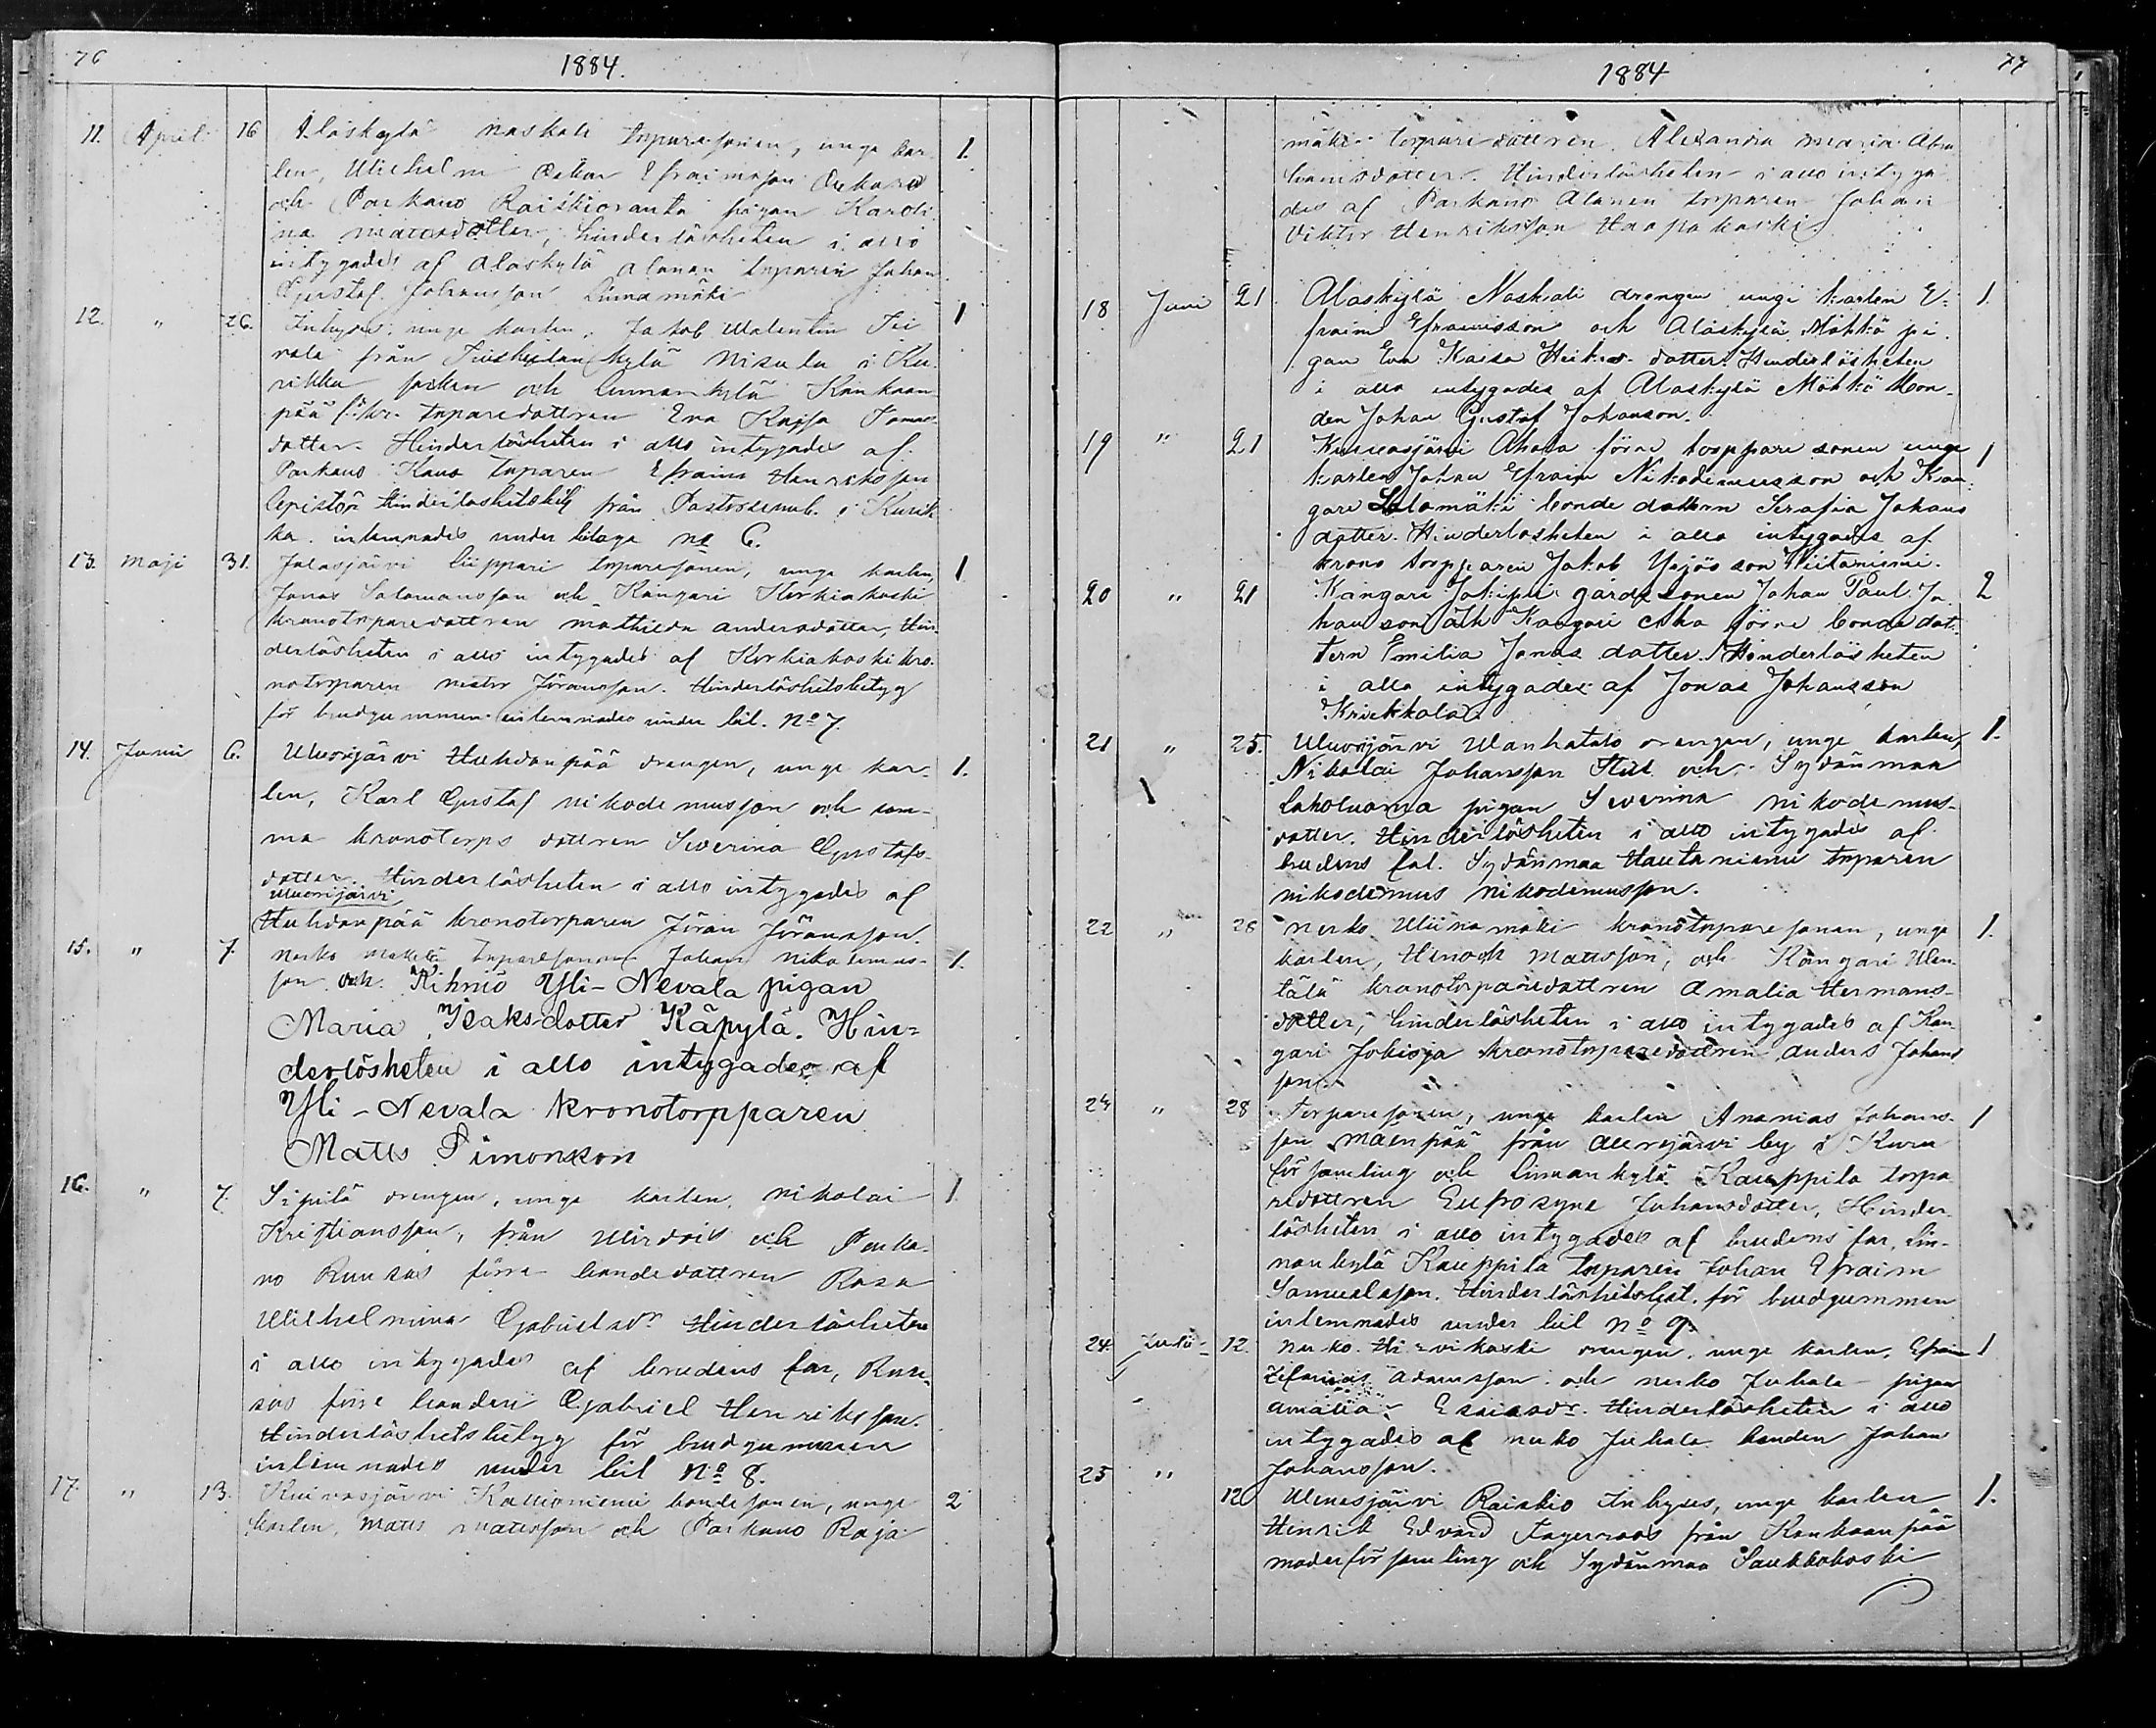 76
1884.
11. April 16 Alaskylä Naskali torparesonen, unge kar- 1.
len, Wilhelm Oskar Efraimsson
och Parkano Raiskioranta pigan Karoli-
na Mattsdotter, hinderlösheten i allo
intygades af Alaskylä Alanen torparen Johan
Gustaf Johansson Linnamäki
12. " 26. Inhyses, unge karlen, Jakob Walentin 1
från kylä Nisula i Ku-
rikka socken och Linnankylä Kankaan-
pää torparedottren Eva Kajsa Jonas-
dotter. Hinderlösheten i allo intygades af
Parkano torparen Efraim Henriksson
hinderlöshetsbetyg från Pastorsemb. i Kurik-
ka inlemnades under bilaga No 6.
13. Maji 31. Jalasjärvi Liippari torparesonen, unge karlen, 1
Jonas Salomonsson och Kangari Kerkiakoski
kronotorparedottren Mathilda Andersdotter, Hin-
derlösheten i allo intygades af Kerkiakoski kro-
notorparen Jöransson. Hinderlöshetsbetyg
för brudgummen inlemnades under bil. No 7.
14. Juni 6. Wuorijärvi Huhdanpää drengen, unge kar- 1.
len, Karl Gustaf Nikodemusson och sam-
ma kronotorps dottren Severina Gustafs-
dotter. Hinderlösheten i allo intygades af
Wuorijärvi
Huhdanpää kronotorparen Jöran Jöransson.
15. " 7. Nerko torparesonen Johan Nikodemus- 1.
son och Kihniö Yli-Nevala pigan
Maria Isaksdotter Käpylä. Hin-
derlösheten i allo intygades af
Yli-Nevala kronotorpparen
Matts Simonsson
16. " 7. Sipilä drengen, unge karlen, Nikolai 1.
Kristiansson, från Wirdois och Parka-
no Ruusas förre bondedottren Rosa
Wilhelmina Gabrielsdr. Hinderlösheten
i allo intygades af brudens far, Ruu-
sas förre bonden Gabriel Henriksson.
Hinderlöshetsbetyg för brudgummen
inlemnades under bil No 8.
17. " 13. Kuivasjärvi Kallioniemi bondesonen, unge 2
karlen, Matts Mattsson och Parkano Raja-
1884
77
mäki torparedottren Alexandra Maria Abra-
hamsdotter. Hinderlösheten i allo intyga-
des af Parkano Alanen torparen Johan
Viktor Henriksson Haapakoski.
18 Juni 21 Alaskylä Naskali drengen unge karlen E- 1.
fraim Efraimsson och Alaskylä Möhkö pi-
gan Eva Kaisa Heikas dotter. Hinderlösheten
i allo intygades af Alaskylä Möhkö bon-
den Johan Gustaf Johanson.
19 " 21 Kuivasjärvi Ahola förre torppare sonen unge 1
karlen Johan Efraim Nikodemusson och Kan-
gari Salomäki bonde dottern Serafia Johans
dotter. Hinderlösheten i allo intygades af
krono torpparen Jakob Yrjös son Wiitaniemi.
20 " 21 Kangari Jokipii gårds sonen Johan Paul Jo- 2
hansson och Kangari Aho förre bonde dot-
tern Emilia Jonas dotter. Hinderlösheten
i allo intygades af Jonas Johansson
Kriekkala.
21 " 25. Wuorijärvi Wanhatalo drengen, unge karlen, 1.
Nikolai Johansson och Sydänmaa
Laholuoma pigan Severina Nikodemus-
dotter. Hinderlösheten i allo intygades af
brudens far Sydänmaa Hautaniemi torparen
Nikodemus Nikodemusson.
22 " 28 Nerko Wiinamäki kronotorparesonen, unge 1.
karlen, Henock Mattsson, och Kangari Wen-
tälä kronotorparedottren Amalia Hermans-
dotter, hinderlösheten i allo intygades af Kan-
gari Jokioja kronotorparedottren Anders Johans
son.
24 " 28 Torparesonen, unge karlen Ananias Johans- 1
son Mäenpää från Aurejärvi by i Kuru
församling och Linnankylä Kauppila torpa-
redottren Eufrosyne Johansdotter, Hinder-
lösheten i allo intygades af brudens far, Lin-
nankylä Kauppila torparen Johan Efraim
Samuelsson. Hinderlöshetsbet. för brudgummen
inlemnades under bil No 9.
24. Julii 12. Nerko Hirvikoski drengen, unge karlen, Efraim 1
Zefanias Adamsson och Nerko Juhala pigan
Amalia Esaiasdr. Hinderlösheten i allo
intygades af Nerko Juhala bonden Johan
Johansson.
25 " 12 Wenesjärvi Raiskio Inhyses, unge karlen 1.
Henrik Edvard Fagerroos från Kankaanpää
moderförsamling och Sydänmaa Saukkokoski